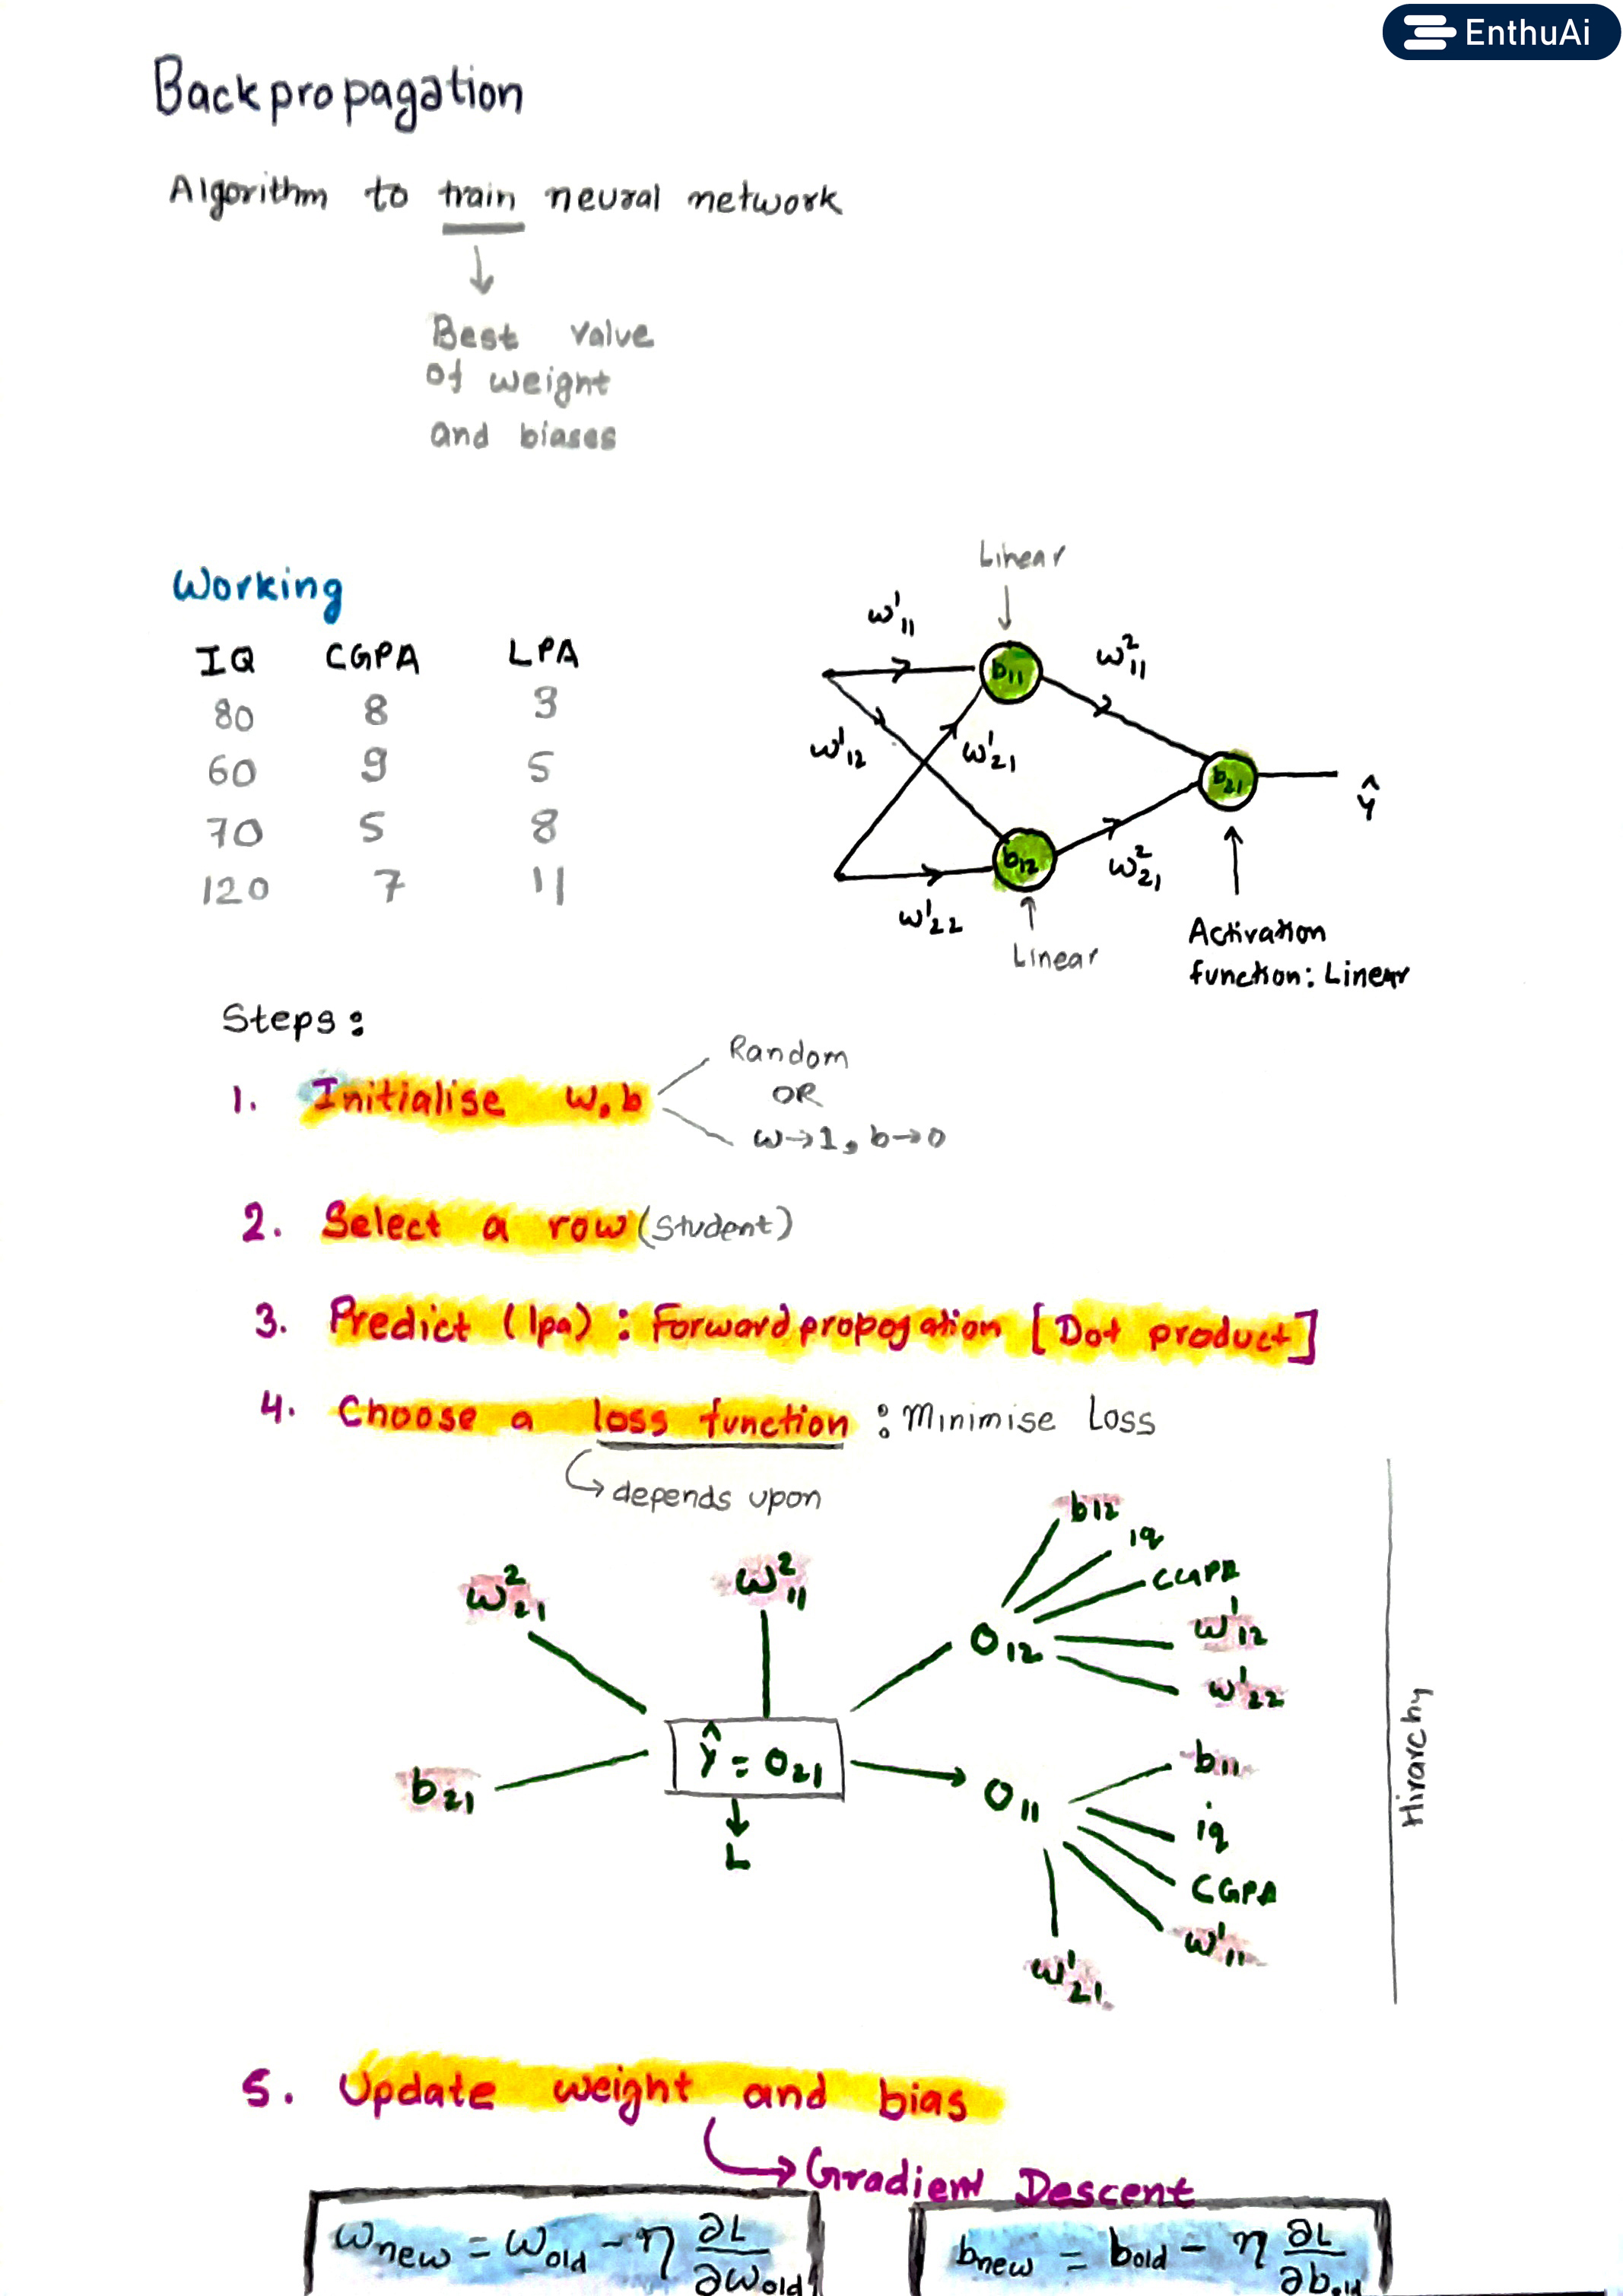 EnthuAi
Backpropagation
Algorithm to train neural network
Best value
of weight
and biases
Working
IQ CGPA LPA
80 8 3
60 9 5
70 5 8
120 7 11
Linear
w¹₁₁
b₁₁
w²₁₁
w¹₁₂
w¹₂₁
b₂₁
ŷ
b₁₂
w²₂₁
w¹₂₂
Linear
Activation
function: Linear
Steps:
Random
1. Initialise w, b
OR
w→1, b→0
2. Select a row (student)
3. Predict (lpa) : Forward propogation [Dot product]
4. Choose a loss function : Minimise Loss
depends upon
b₁₂
iq
CGPA
w²₂₁
w²₁₁
O₁₂
w¹₁₂
w¹₂₂
Ŷ = O₂₁
b₂₁
O₁₁
b₁₁
iq
L
CGPA
w¹₁₁
w¹₂₁
Hirarchy
5. Update weight and bias
Gradient Descent
w new = w old - η ∂L/∂w old
b new = b old - η ∂L/∂b old